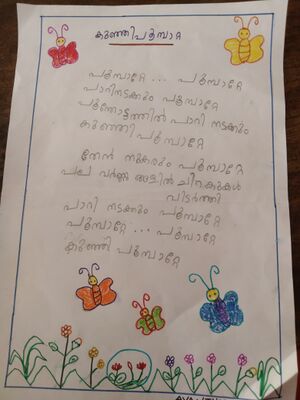 കുഞ്ഞിപൂമ്പാറ്റ
പൂമ്പാറ്റേ ... പൂമ്പാറ്റേ
പാറിനടക്കും പൂമ്പാറ്റേ
പൂന്തോട്ടത്തിൽ പാറി നടക്കും
കുഞ്ഞി പൂമ്പാറ്റേ
തേൻ നുകരും പൂമ്പാറ്റേ
പല വർണ്ണ ങ്ങളിൽ ചിറകുകൾ
വിടർത്തി
പാറി നടക്കും പൂമ്പാറ്റേ
പൂമ്പാറ്റേ ... പൂമ്പാറ്റേ
കുഞ്ഞി പൂമ്പാറ്റേ